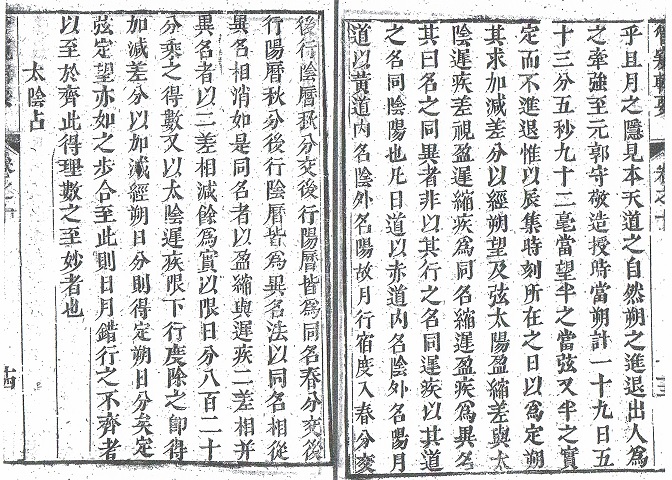 管窺輯要
卷之十
十三
乎且月之隱見本天道之自然朔之進退出人為
之牽強至元郭守敬造授時當朔計一十九日五
十三分五秒九十二毫當望半之當弦又半之實
定而不進退惟以辰集時刻所在之日以為定朔
其求加減差分以經朔望及弦太陽盈縮差與太
陰遲疾差視盈遲縮疾為同名縮遲盈疾為異名
其曰名之同異者非以其行之名同遲疾以其道
之名同陰陽也凡日道以赤道內名陰外名陽月
道以黃道內名陰外名陽故月行宿度入春分交
後行陰曆秋分交後行陽曆皆為同名春分交後
行陽曆秋分後行陰曆皆為異名法以同名相從
異名相消如是同名者以盈縮與遲疾二差相并
異名者以三差相減餘為實以限日分八百二十
分乘之得數又以太陰遲疾限下行度除之即得
加減差分以加減經朔日分則得定朔日分矣定
弦定望亦如之步合至此則日月錯行之不齊者
以至於齊此得理數之至妙者也
太陰占
卷之十
十四